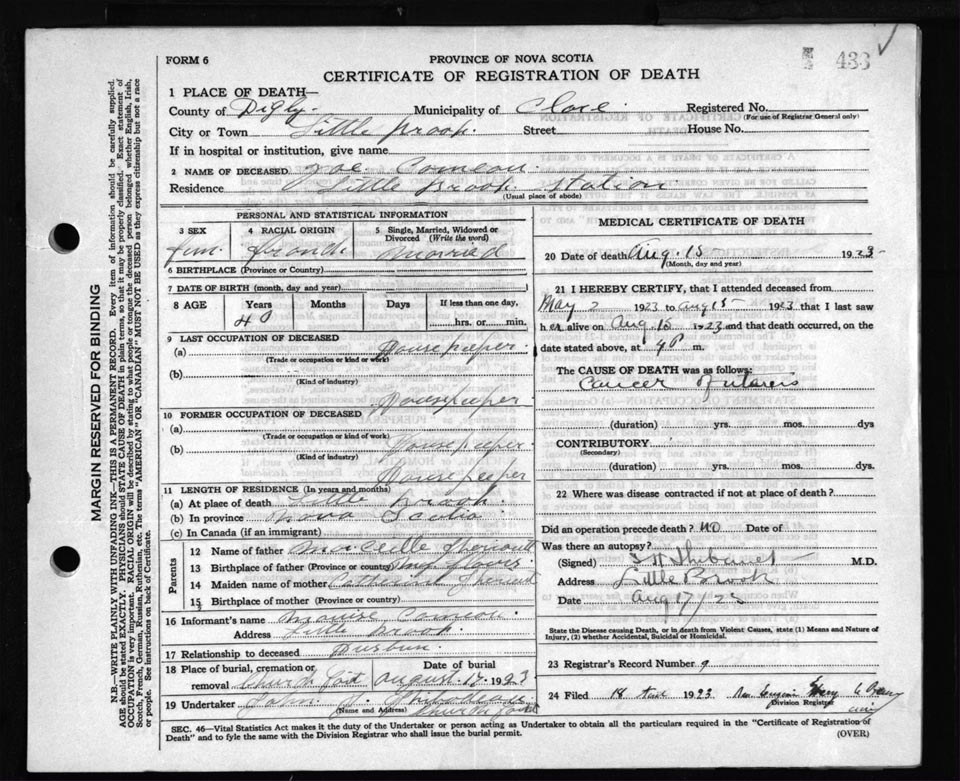 436
FORM 6
PROVINCE OF NOVA SCOTIA
CERTIFICATE OF REGISTRATION OF DEATH
1 PLACE OF DEATH—
County of Digby. Municipality of Clare Registered No.
(For use of Registrar General only)
City or Town Little Brook. Street House No.
If in hospital or institution, give name
2 NAME OF DECEASED Joe Comeau.
Residence Little Brook Station
(Usual place of abode)
PERSONAL AND STATISTICAL INFORMATION
3 SEX
4 RACIAL ORIGIN
5 Single, Married, Widowed or Divorced (Write the word)
fem. french Married
6 BIRTHPLACE (Province or Country)
7 DATE OF BIRTH (month, day and year)
8 AGE Years Months Days If less than one day,
40 hrs. or min.
9 LAST OCCUPATION OF DECEASED
(a) Housekeeper.
(Trade or occupation or kind of work)
(b)
(Kind of industry)
Housekeeper.
10 FORMER OCCUPATION OF DECEASED
(a)
(Trade or occupation or kind of work)
(b) Housekeeper.
(Kind of industry)
Housekeeper
11 LENGTH OF RESIDENCE (In years and months)
(a) At place of death Little Brook
(b) In province Nova Scotia
(c) In Canada (if an immigrant)
Parents
12 Name of father
13 Birthplace of father (Province or country)
14 Maiden name of mother Catherine
15 Birthplace of mother (Province or country)
16 Informant's name Comeau.
Address Little Brook.
17 Relationship to deceased
18 Place of burial, cremation or removal Church Point
Date of burial August 17 1923
19 Undertaker John J. Thibodeau
(Name and Address) Church Point
MEDICAL CERTIFICATE OF DEATH
20 Date of death Aug. 15 1923
(Month, day and year)
21 I HEREBY CERTIFY, that I attended deceased from
May 2 1923 to Aug 15 1923 that I last saw
her alive on Aug 15 1923 and that death occurred, on
date stated above, at 9 P m.
The CAUSE OF DEATH was as follows:
Cancer of uterus
(duration) yrs. mos. dys
CONTRIBUTORY
(Secondary)
(duration) yrs. mos. dys.
22 Where was disease contracted if not at place of death?
Did an operation precede death? no Date of
Was there an autopsy?
(Signed) M.D.
Address Little Brook
Date Aug 17/23
State the Disease causing Death, or in death from Violent Causes, state (1) Means and Nature of Injury, (2) whether Accidental, Suicidal or Homicidal.
23 Registrar's Record Number 9
24 Filed 18 1923
Division Registrar
SEC. 46—Vital Statistics Act makes it the duty of the Undertaker or person acting as Undertaker to obtain all the particulars required in the "Certificate of Registration of
Death" and to fyle the same with the Division Registrar who shall issue the burial permit.
(OVER)
MARGIN RESERVED FOR BINDING
N.B.—WRITE PLAINLY WITH UNFADING INK—THIS IS A PERMANENT RECORD. Every item of information should be carefully supplied.
AGE should be stated EXACTLY. PHYSICIANS should STATE CAUSE OF DEATH in plain terms, so that it may be properly classified. Exact statement of
OCCUPATION is very important. RACIAL ORIGIN will be described by stating to what people or tongue the deceased person belonged whether English, Irish,
Scotch, French, German, Russian, Ruthenian, etc. The terms "AMERICAN" OR "CANADIAN" MUST NOT BE USED as they express citizenship but not a race
or people. See instructions on back of Certificate.